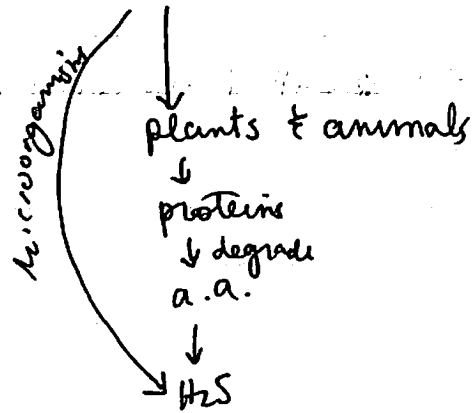 microorganisms
plants & animals
proteins
degrade
a.a.
H2S